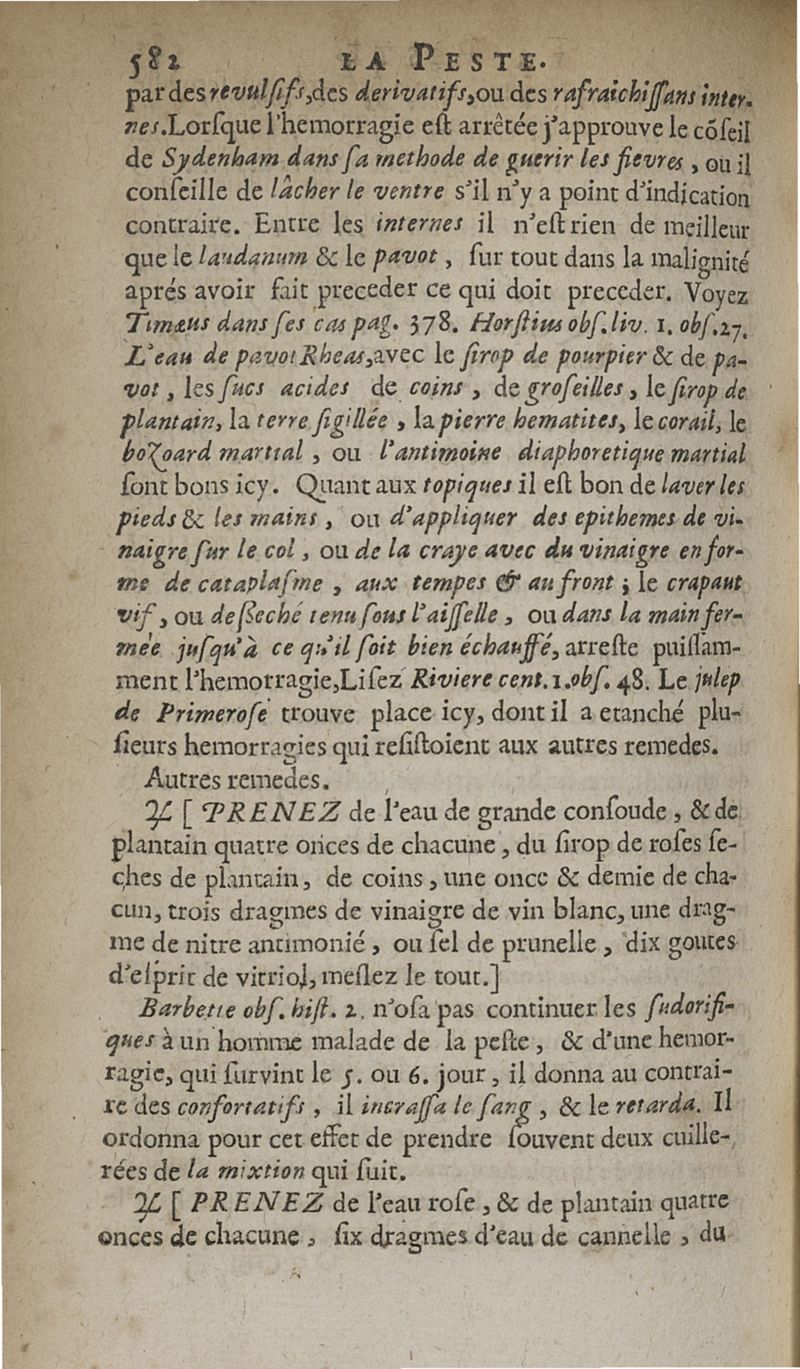 582 LA PESTE.
par des revulſifs,des derivatifs,ou des rafraichiſſans inter-
nes.Lorſque l'hemorragie eſt arrêtée j'approuve le cõſeil
de Sydenham dans ſa methode de guerir les fievres , ou il
conſeille de lâcher le ventre s'il n'y a point d'indication
contraire. Entre les internes il n'eſt rien de meilleur
que le laudanum & le pavot , ſur tout dans la malignité
aprés avoir fait preceder ce qui doit preceder. Voyez
Timæus dans ſes cas pag. 378. Horſtius obſ.liv. 1. obſ.27.
L'eau de pavot Rheas,avec le ſirop de pourpier & de pa-
vot , les ſucs acides de coins , de groſeilles , le ſirop de
plantain, la terre ſigillée , la pierre hematites, le corail, le
bozoard martial , ou l'antimoine diaphoretique martial
ſont bons icy. Quant aux topiques il eſt bon de laver les
pieds & les mains , ou d'appliquer des epithemes de vi-
naigre ſur le col , ou de la craye avec du vinaigre en for-
me de cataplaſme , aux tempes & au front ; le crapaut
vif , ou deſſeché tenu ſous l'aiſſelle , ou dans la main fer-
mée juſqu'à ce qu'il ſoit bien échauffé, arreſte puiſſam-
ment l'hemorragie,Liſez Riviere cent.1.obſ. 48. Le julep
de Primeroſe trouve place icy, dont il a etanché plu-
ſieurs hemorragies qui reſiſtoient aux autres remedes.
Autres remedes.
℞ [ PRENEZ de l'eau de grande conſoude , & de
plantain quatre onces de chacune , du ſirop de roſes ſe-
ches de plantain, de coins , une once & demie de cha-
cun, trois dragmes de vinaigre de vin blanc, une drag-
me de nitre antimonié , ou ſel de prunelle , dix goutes
d'eſprit de vitriol, meſlez le tout.]
Barbette obſ. hiſt. 2. n'oſa pas continuer les ſudorifi-
ques à un homme malade de la peſte , & d'une hemor-
ragie, qui ſurvint le 5. ou 6. jour , il donna au contrai-
re des confortatifs , il incraſſa le ſang , & le retarda. Il
ordonna pour cet effet de prendre ſouvent deux cuille-
rées de la mixtion qui ſuit.
℞ [ PRENEZ de l'eau roſe , & de plantain quatre
onces de chacune , ſix dragmes d'eau de cannelle , du